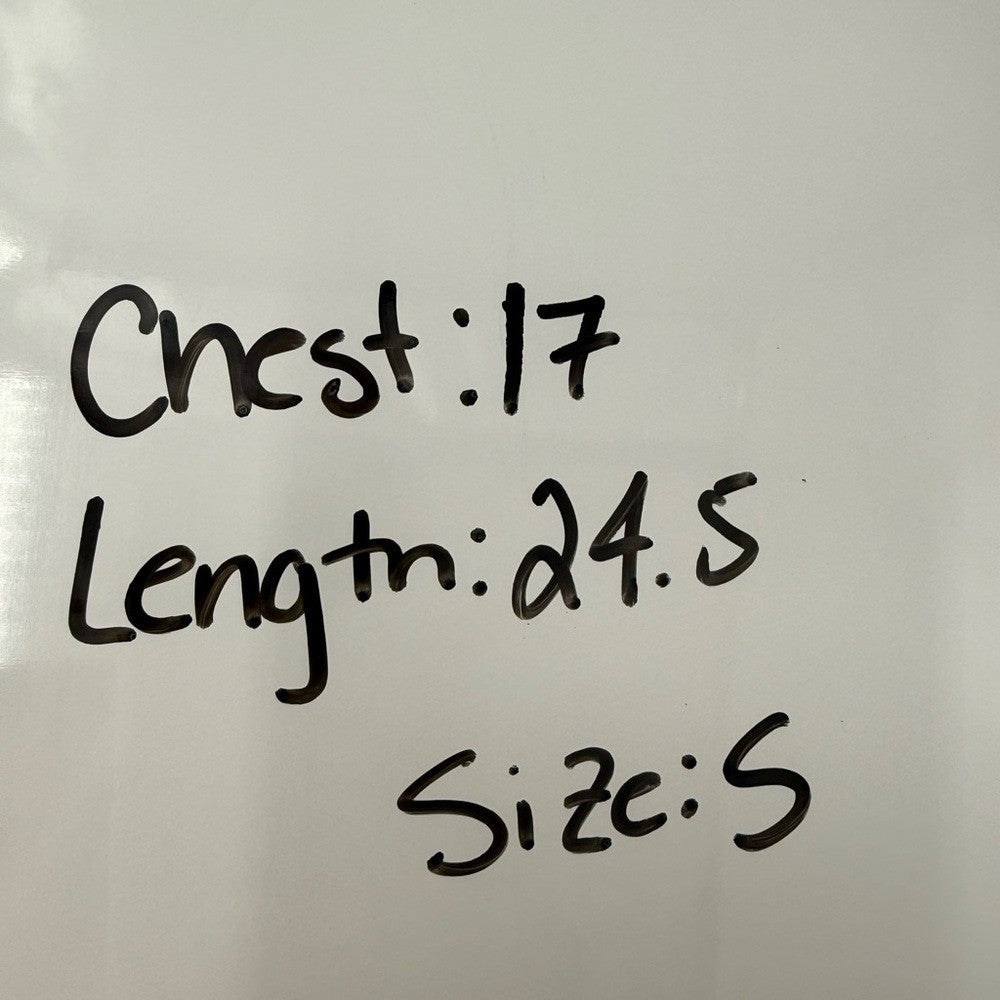 Chest:17
Length:24.5
Size:S